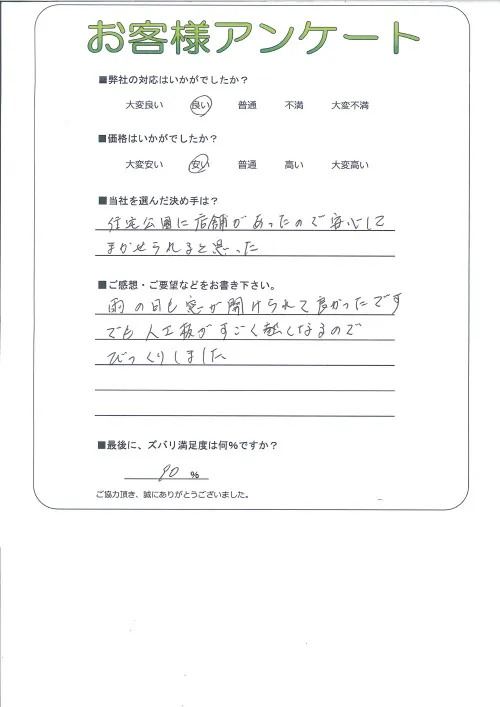 お客様アンケート
■弊社の対応はいかがでしたか？
大変良い 良い 普通 不満 大変不満
■価格はいかがでしたか？
大変安い 安い 普通 高い 大変高い
■当社を選んだ決め手は？
住宅公園に店舗があったので安心して
まかせられると思った
■ご感想・ご要望などをお書き下さい。
雨の日も窓が開けられて良かったです
でも人工板がすごく熱くなるので
びっくりしました
■最後に、ズバリ満足度は何%ですか？
90 %
ご協力頂き、誠にありがとうございました。